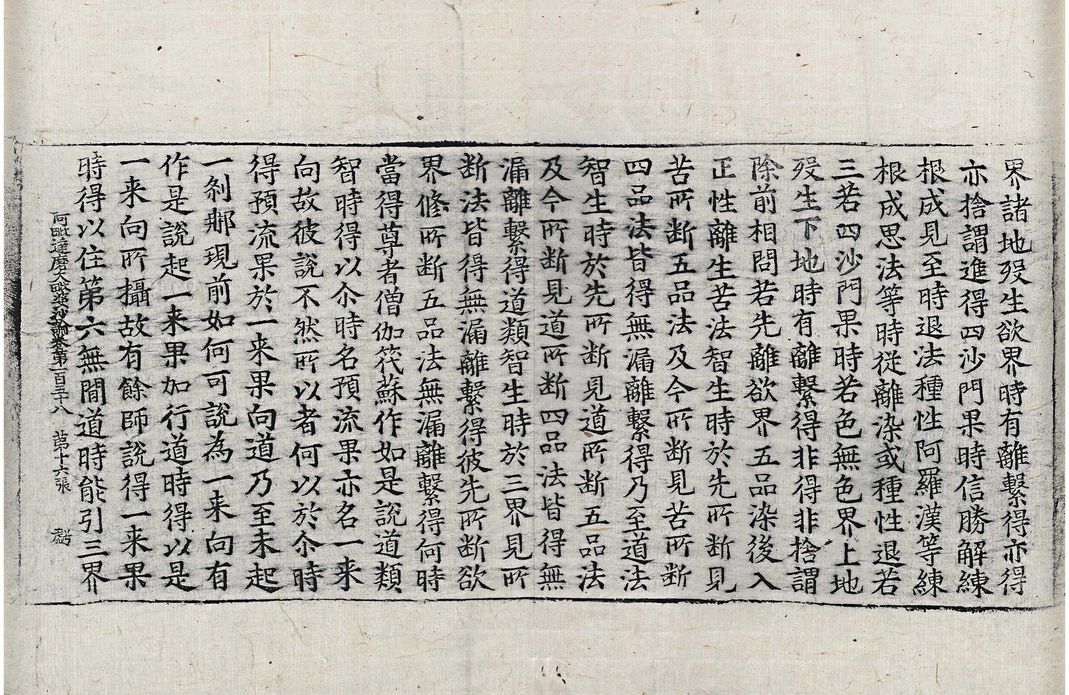 界諸地歿生欲界時有離繫得亦得
亦捨謂進得四沙門果時信勝解練
根成見至時退法種性阿羅漢等練
根成思法等時從離染或種性退若
三若四沙門果時若色無色界上地
歿生下地時有離繫得非得非捨謂
除前相問若先離欲界五品染後入
正性離生苦法智生時於先所断見
苦所断五品法及今所断見苦所断
四品法皆得無漏離繫得乃至道法
智生時於先所断見道所断五品法
及今所断見道所断四品法皆得無
漏離繫得道類智生時於三界見所
断法皆得無漏離繫得彼先所断欲
界修所断五品法無漏離繫得何時
當得尊者僧伽筏蘇作如是說道類
智時得以尒時名預流果亦名一来
向故彼說不然所以者何以於尒時
得預流果於一来果向道乃至未起
一剎那現前如何可說為一来向有
作是說起一来果加行道時得以是
一来向所攝故有餘師說得一来果
時得以住第六無間道時能引三界
阿毗達磨大毗婆沙論卷第一百五十八 第十六張